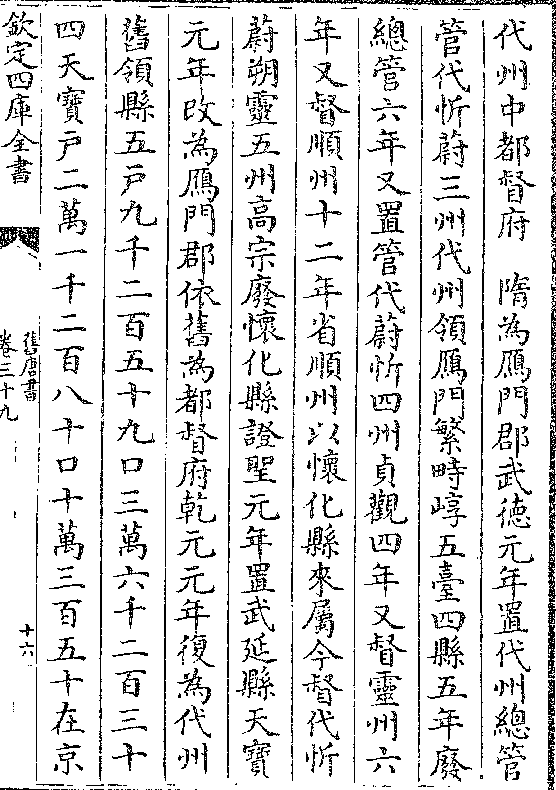 代州中都督府　隋為鴈門郡武徳元年置代州總管
管代忻蔚三州代州領鴈門繁畤崞五臺四縣五年廢
總管六年又置管代蔚忻四州貞觀四年又督靈州六
年又督順州十二年省順州以懷化縣來屬今督代忻
蔚朔靈五州高宗廢懷化縣證聖元年置武延縣天寳
元年改為鴈門郡依舊為都督府乾元元年復為代州
舊領縣五戸九千二百五十九口三萬六千二百三十
四天寳戸二萬一千二百八十口十萬三百五十在京
欽定四庫全書
舊唐書
卷三十九
十六